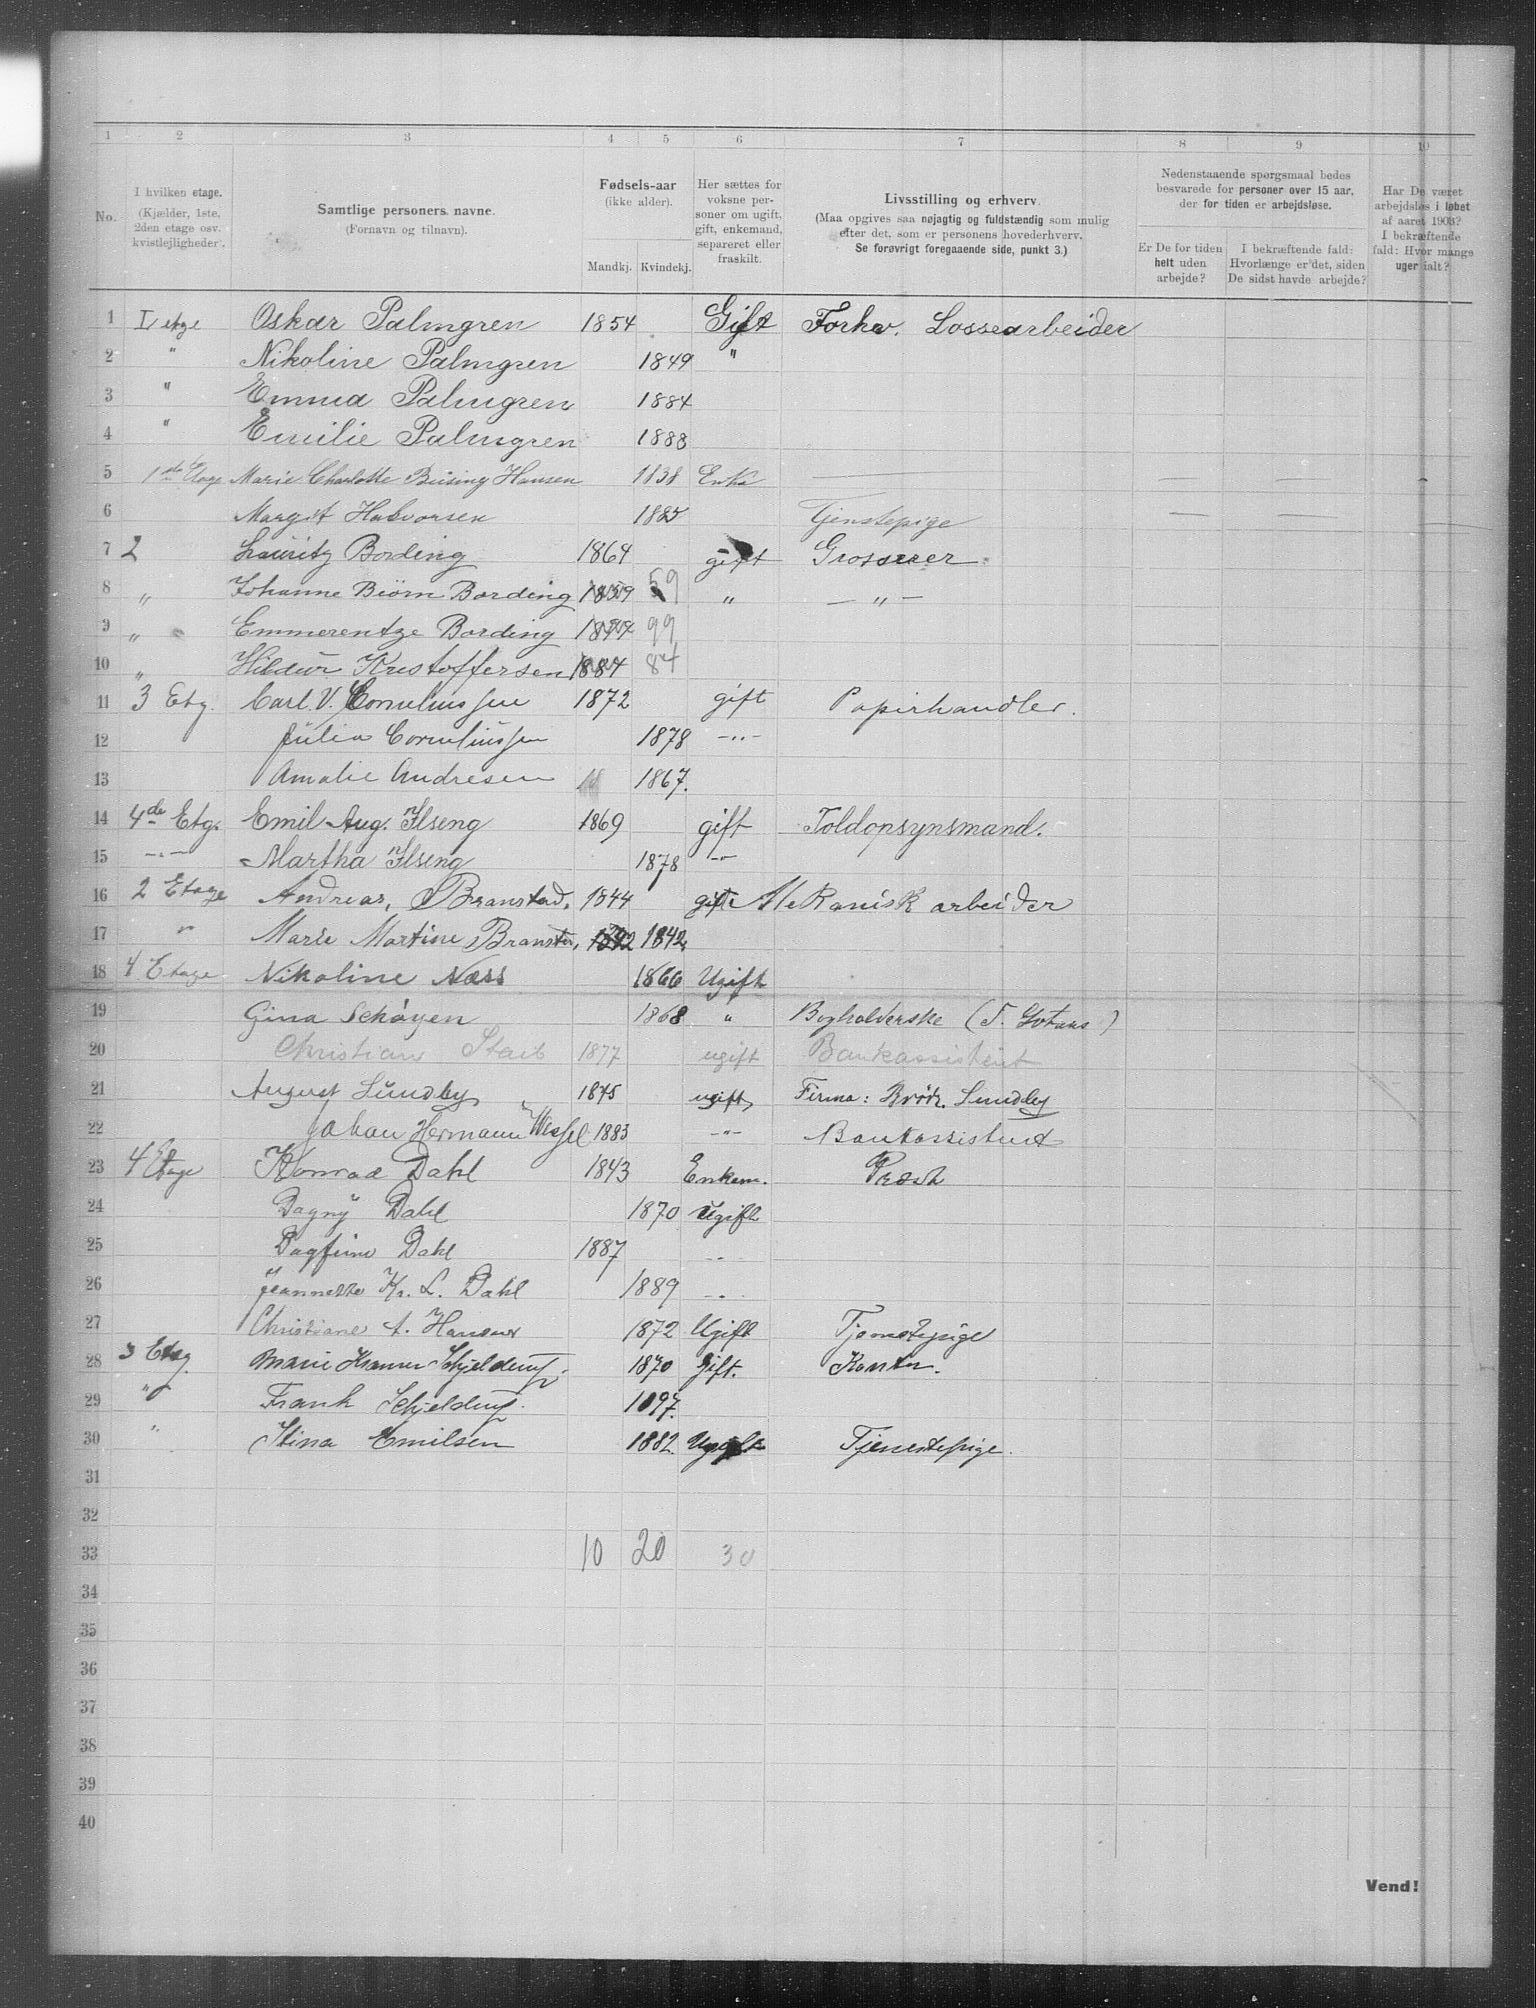 1 2 3 4 5 6 7 8 9 10
No.
I hvilken etage.
(Kjælder, 1ste, 2den etage osv. kvistlejligheder).
Samtlige personers navne.
(Fornavn og tilnavn).
Fødsels-aar
(ikke alder).
Mandkj. Kvindekj.
Her sættes for voksne personer om ugift, gift, enkemand, separeret eller fraskilt.
Livsstilling og erhverv.
(Maa opgives saa nøjagtig og fuldstændig som mulig efter det, som er personens hovederhverv.
Se forøvrigt foregaaende side, punkt 3.)
Nedenstaaende spørgsmaal bedes besvarede for personer over 15 aar, der for tiden er arbejdsløse.
Er De for tiden helt uden arbejde?
I bekræftende fald: Hvorlænge er det, siden De sidst havde arbejde?
Har De været arbejdsløs i løbet af aaret 1903? I bekræftende fald: Hvor mange uger ialt?
1 I etge Oskar Palmgren 1854 Gift Forhv. Lossearbeider
2 " Nikoline Palmgren 1849 "
3 " Emma Palmgren 1884
4 " Emilie Palmgren 1888
5 1ste Etage Marie Charlotte Büsing Hansen 1838 Enke — — —
6 Margit Halvorsen 1885 Tjenstepige — —
7 2 Lauritz Bording 1864 gift Grosserer
8 " Johanne Biörn Bording 1859 59 " — " —
9 " Emmerentze Bording 99
10 " Hildur Kristoffersen 1884 84
11 3 Etg. Carl. V. Corneliussen 1872 gift Papirhandler.
12 Julia Corneliussen 1878 — " —
13 Amalie Andresen 18 1867.
14 4de Etg. Emil Aug. Ilseng 1869 gift Toldopsynsmand.
15 — " — Martha Ilseng 1878 — " —
16 2 Etage Andreas, Branstad, 1844 gift Mekanisk arbeider
17 " Marie Martine 1842 1842,
18 4 Etage Nikoline Næss 1866 Ugift
19 Gina Schøyen 1868 " Bogholderske
20 Christian Staib 1877 ugift Bankassistent
21 August Lundby 1875 ugift, Firma: Brödr. Lundby
22 Johan Hermann Wessel 1883 — " — Bankassistent
23 4 Etage Konrad Dahl 1843 Enkem. Præst
24 Dagny Dahl 1870 Ugift
25 Dagfinn Dahl 1887 "
26 Jeannette Kr. L. Dahl 1889 "
27 Christiane A. Hansen 1872 Ugift Tjenestepige
28 3 Etag. Marie Schjelderup. 1870 Gift. Kontor.
29 " Frank Schjelderup. 1897.
30 " Stina Emilsen 1882. Ugift Tjenestepige.
31
32
33 10 20 30
34
35
36
37
38
39
40
Vend!